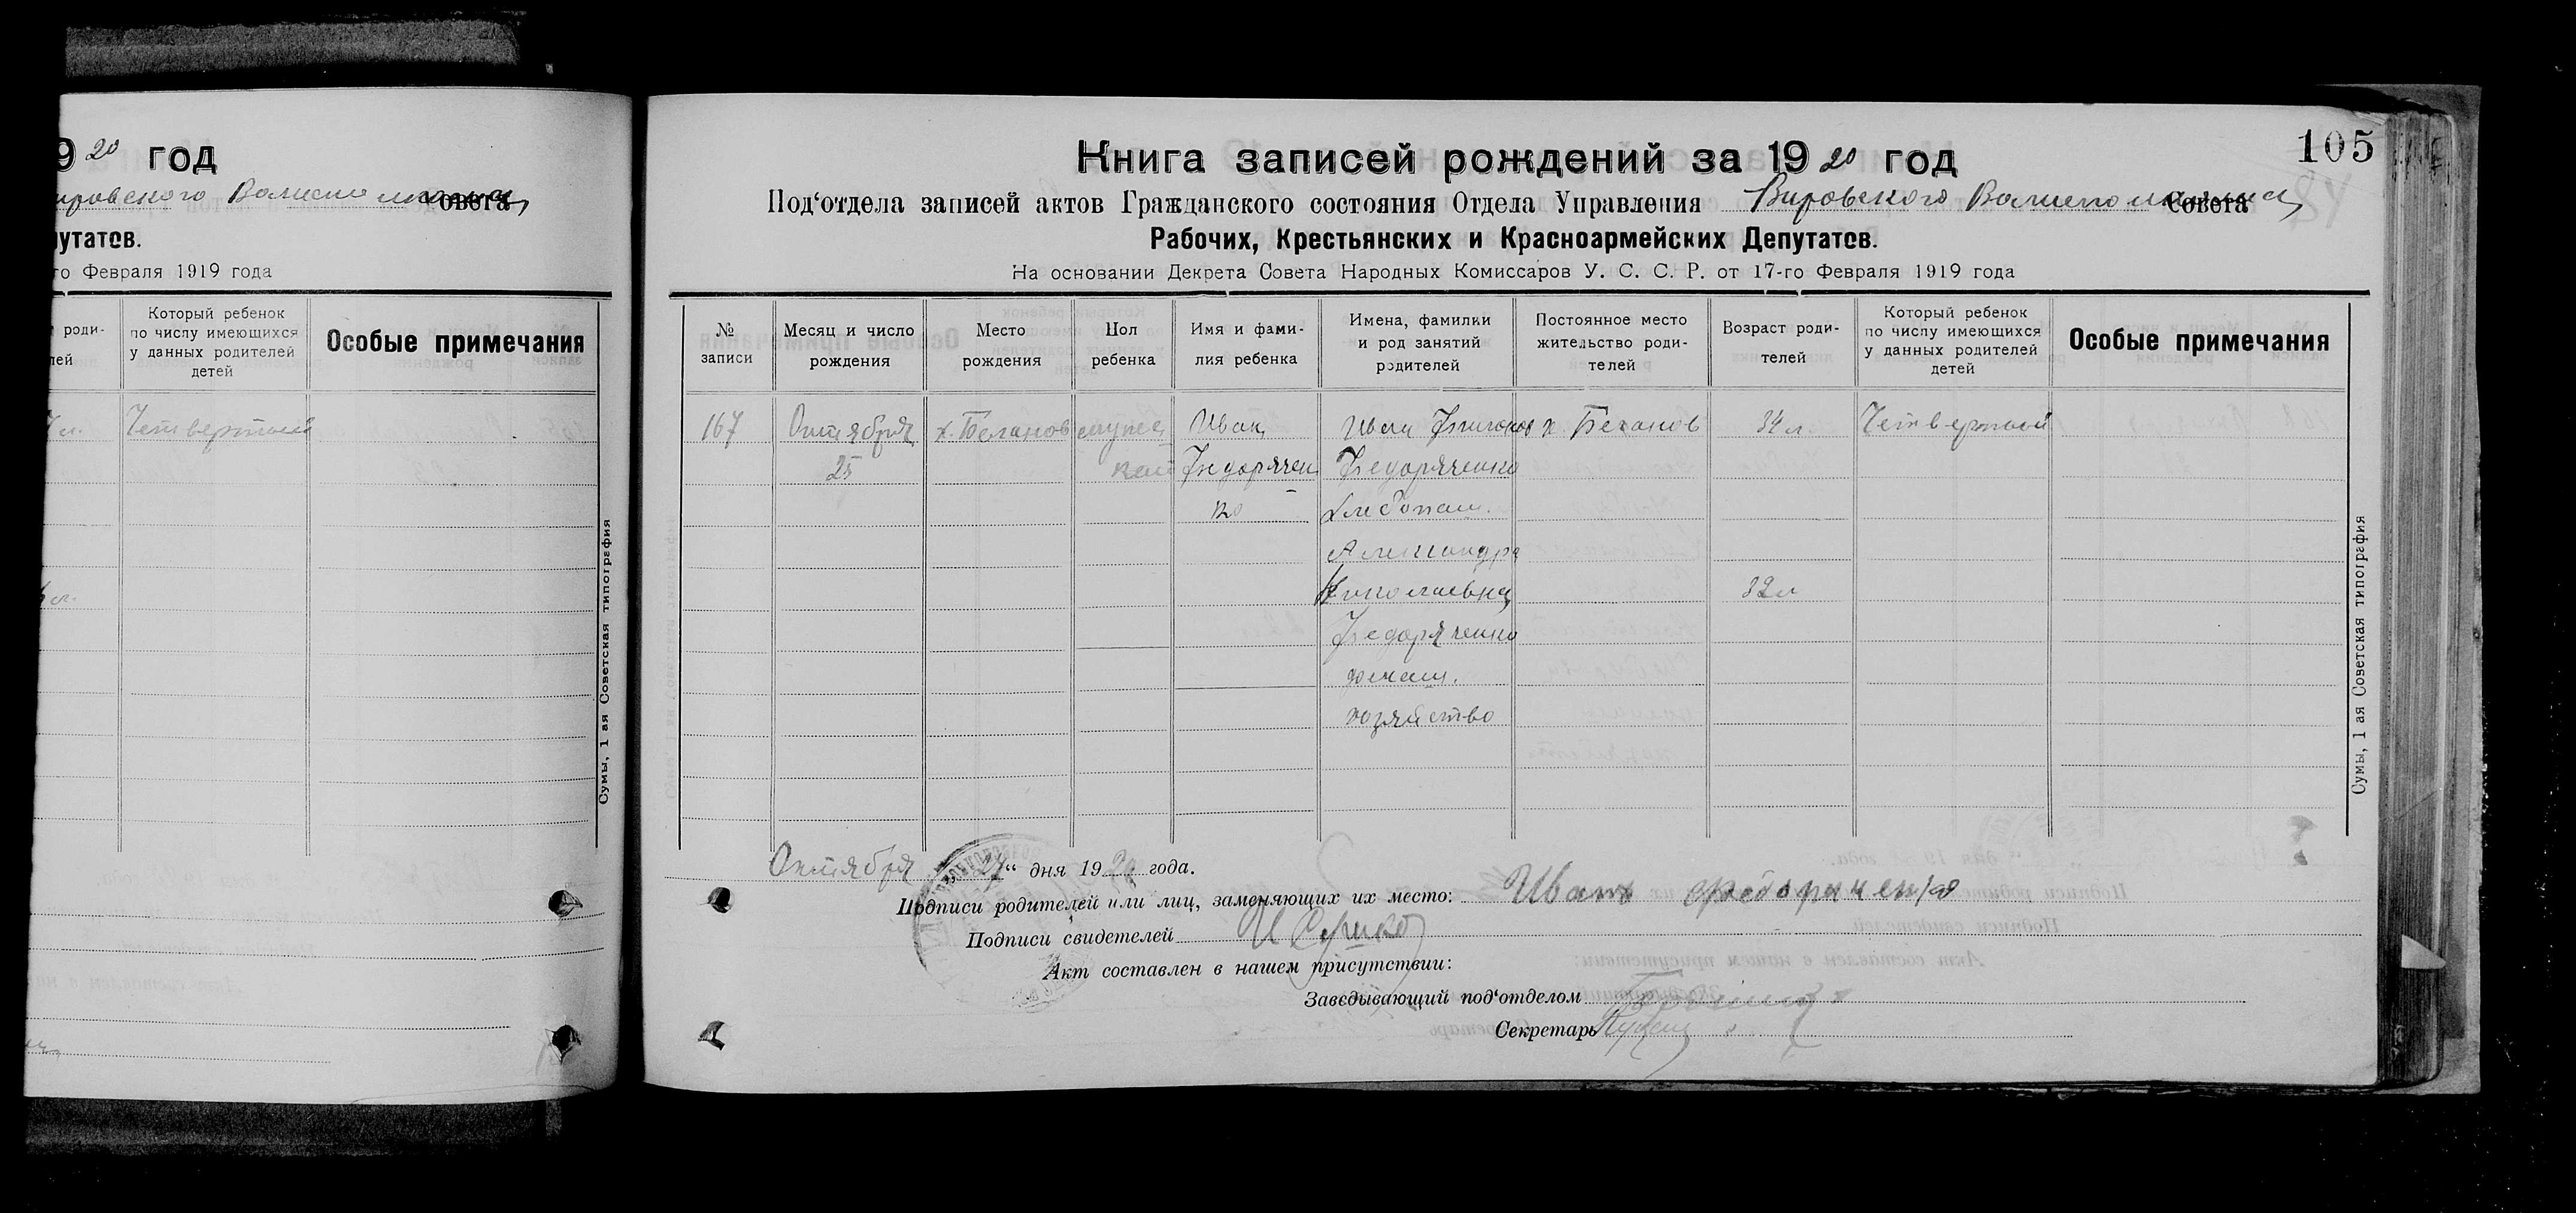 9 20 год
совета
путатов.
го Февраля 1919 года
роди-
лей
Который ребенок
по числу имеющихся
у данных родителей
детей
Особые примечания
Четвертый
Сумы, 1 ая Советская типография
105
Книга записей рождений за 19 20 год
Под‘отдела записей актов Гражданского состояния Отдела Управления Вировского Совета
Рабочих, Крестьянских и Красноармейских Депутатов.
На основании Декрета Совета Народных Комиссаров У. С. С. Р. от 17-го Февраля 1919 года
№
записи
Месяц и число
рождения
Место
рождения
Пол
ребенка
Имя и фами-
лия ребенка
Имена, фамилии
и род занятий
родителей
Постоянное место
жительство роди-
телей
Возраст роди-
телей
Который ребенок
по числу имеющихся
у данных родителей
детей
Особые примечания
167
Октября
25
х.
мужес
кой
Иван
Федорячен
ко
Иван
Федоряченко
хлебопаш.
Александра
Николаевна
Федоряченко
домаш.
хозяйство
х.
34 л.
32 л
Четвертый
Сумы, 1 ая Советская типография
Октября 27“ дня 1920 года.
Подписи родителей или лиц, заменяющих их место: Иван
Подписи свидетелей
Акт составлен в нашем присутствии:
Заведывающий под‘отделом
Секретарь